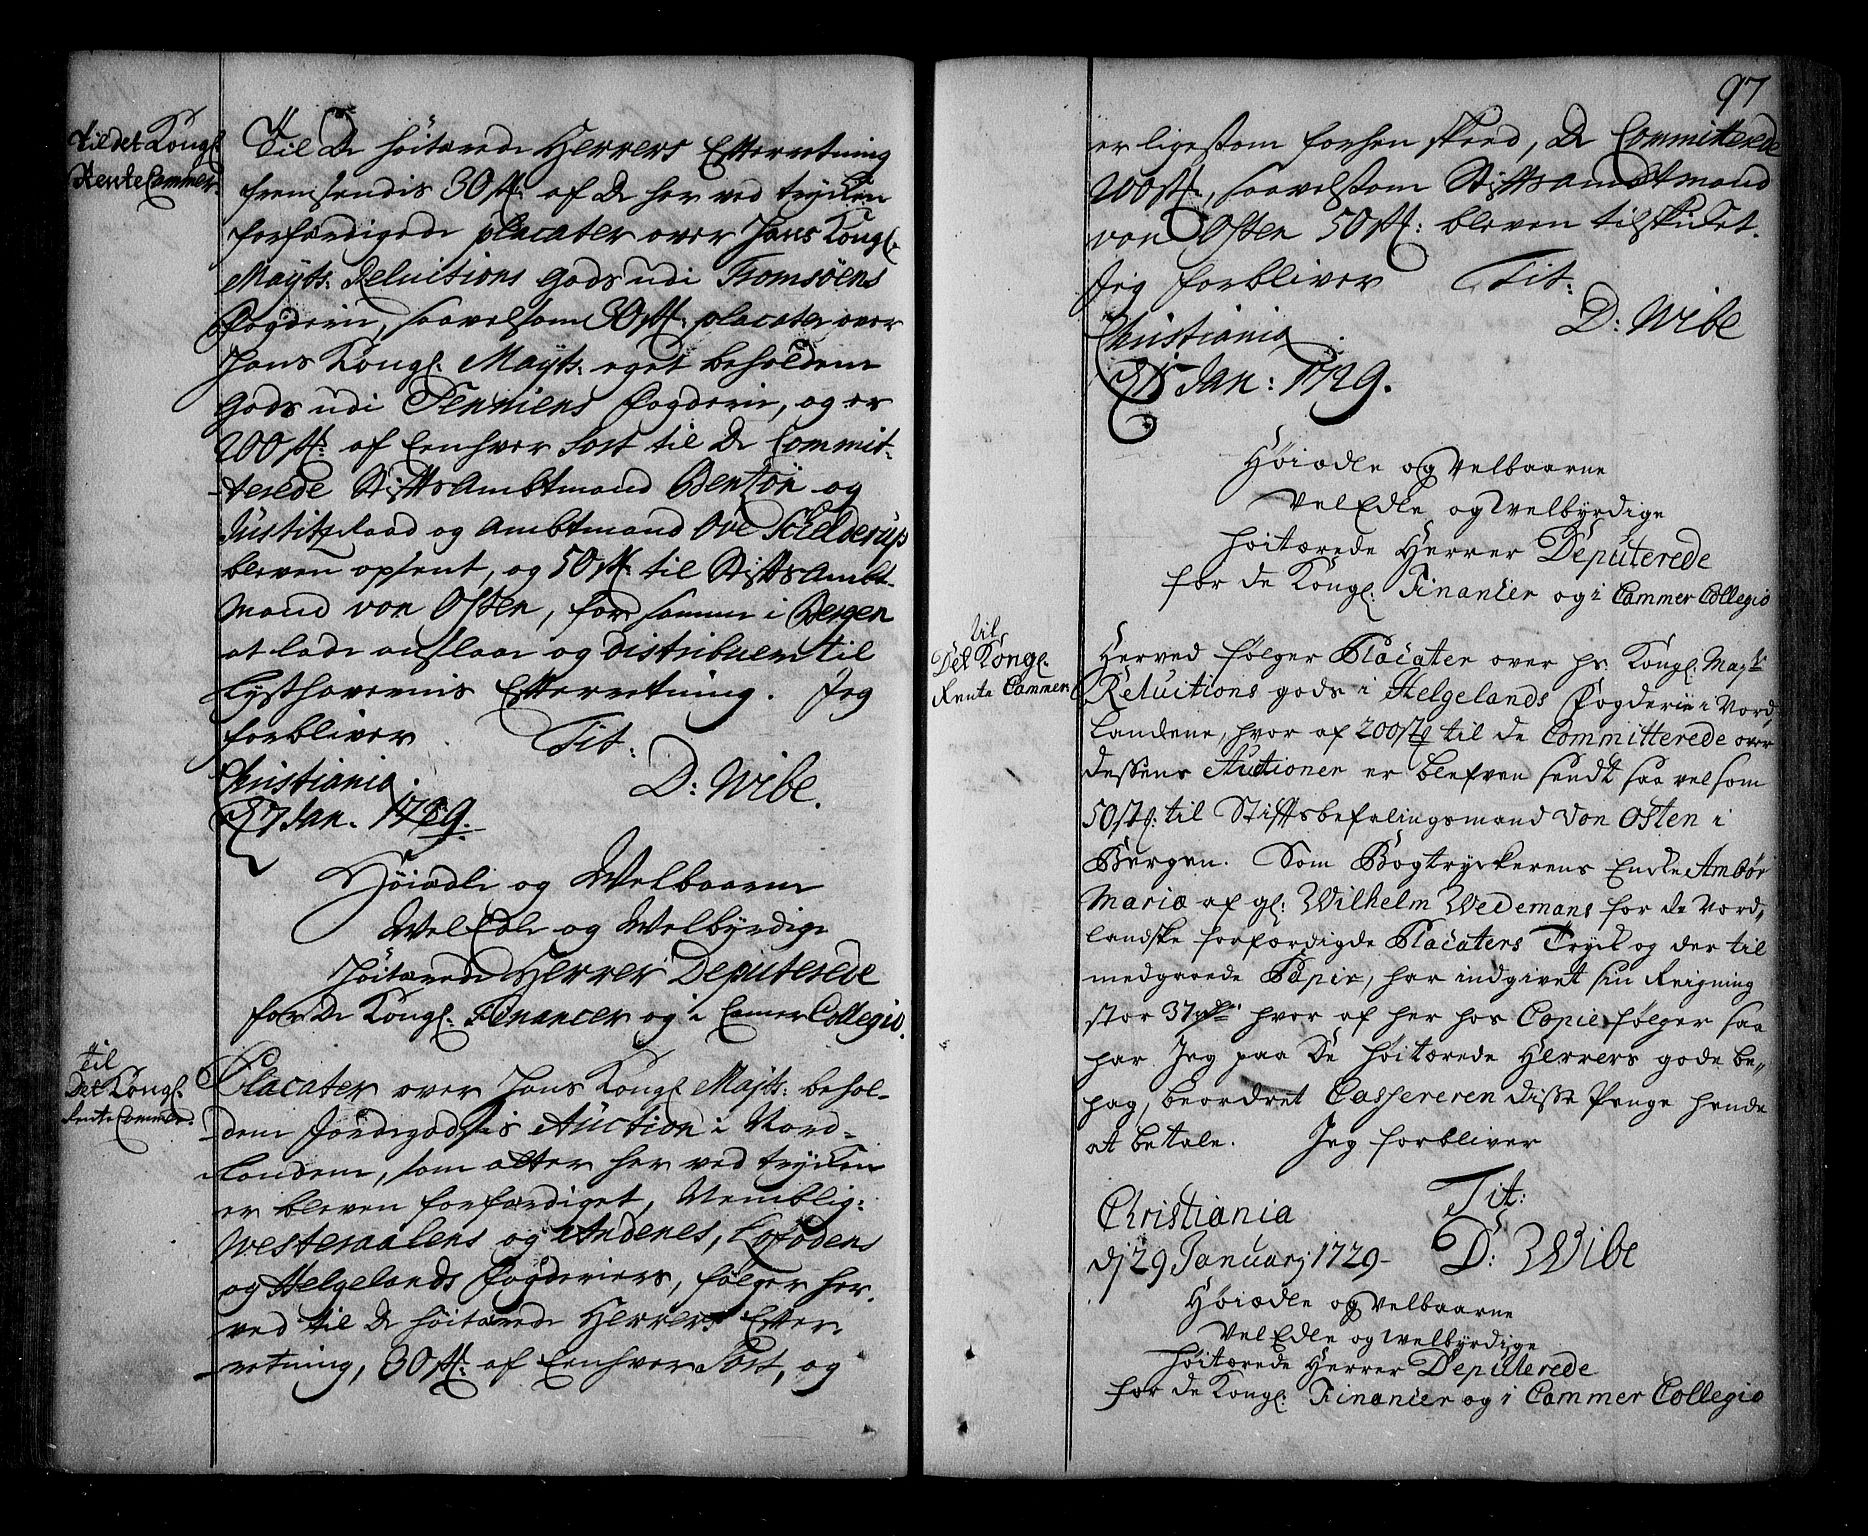 Til det Kongl.
Rente Cammer.
Til De høitærede Herrers Efterretning
fremsendis 30 st: af de her ved trycken
forfærdigede placater over Hans Kongl.
Mayts: Reluitions Gods udi Tromsøens
Fogderie, saavelsom 30 st: placater over
Hans Kongl. Mayts: eget beholdene
Gods udi Senniens Fogderie, og er
200 st: af Eenhver Sort til De Commit-
terede Stiftsambtmand Bentzon og
Justitz Raad og Ambtmand Ove Schelderup
bleven opsent, og 50 st: til Stiftsambt-
mand von Osten, for samme i Bergen
at lade anslaae og distribuere til
Lysthavernis Efterretning. Jeg
forbliver Tit:
Christiania D: Wibe.
27 Jan. 1729.
Høiædle og Welbaarne
WelEdle og Welbyrdige
Høitærede Herrer Deputerede
for De Kongl. Financer og i Cammer Collegio.
Til
Det Kongl.
Rente Cammer.
Placater over Hans Kongl. Mayts: behol-
dene Jordegodsis Auction i Nord-
landene, som atter her ved trycken
er bleven forfærdiget, Nemblig:
Westeraalens og Andenes, Lofodens
og Helgelands Fogderiers, følger her-
ved til De høitærede Herrers Efter-
retning, 30 st: af Eenhver Sort, og
97
er ligesom forhen skeed, De Committerede
200 st:, saavelsom Stiftsambtmand
von Osten 50 st: bleven tilskicket.
Jeg forbliver Tit:
Christiania D: Wibe
Jan: 1729.
Høiædle og Velbaarne
VelEdle og Welbyrdige
høitærede Herrer Deputerede
for de Kongl. Financer og i Cammer Collegio
Til
Det Kongl.
Rente Cammer
Herved følger Placater over hs: Kongl. Mayts
Reluitions gods i Helgelands Fogderie i Nord
Landene, hvor af 200 st til de Committerede over
dessens Auctioner er blefven sendt saa vel som
50 st: til Stiftsbefalingsmand Von Osten i
Bergen. Som Bogtryckerens Encke Ambør
Maria af gl: Wilhelm Wedemans for de Nord,
landske forfærdigde Placaters Tryck og der til
medgaaede Papir, har indgivet sin Reigning
stor 37 rdr hvor af her hos Copie følger saa
har Jeg paa De høitærede Herrers gode be-
hag, beordret Cassereren disse Penge hende
at betale. Jeg forbliver
Tit:
Christiania
dj 29 Januarj 1729- D: Wibe
Høiædle og Velbaarne
VelEdle og Welbyrdige
høitærede Herrer Deputerede
for de Kongl: Financer og i Cammer Collegio